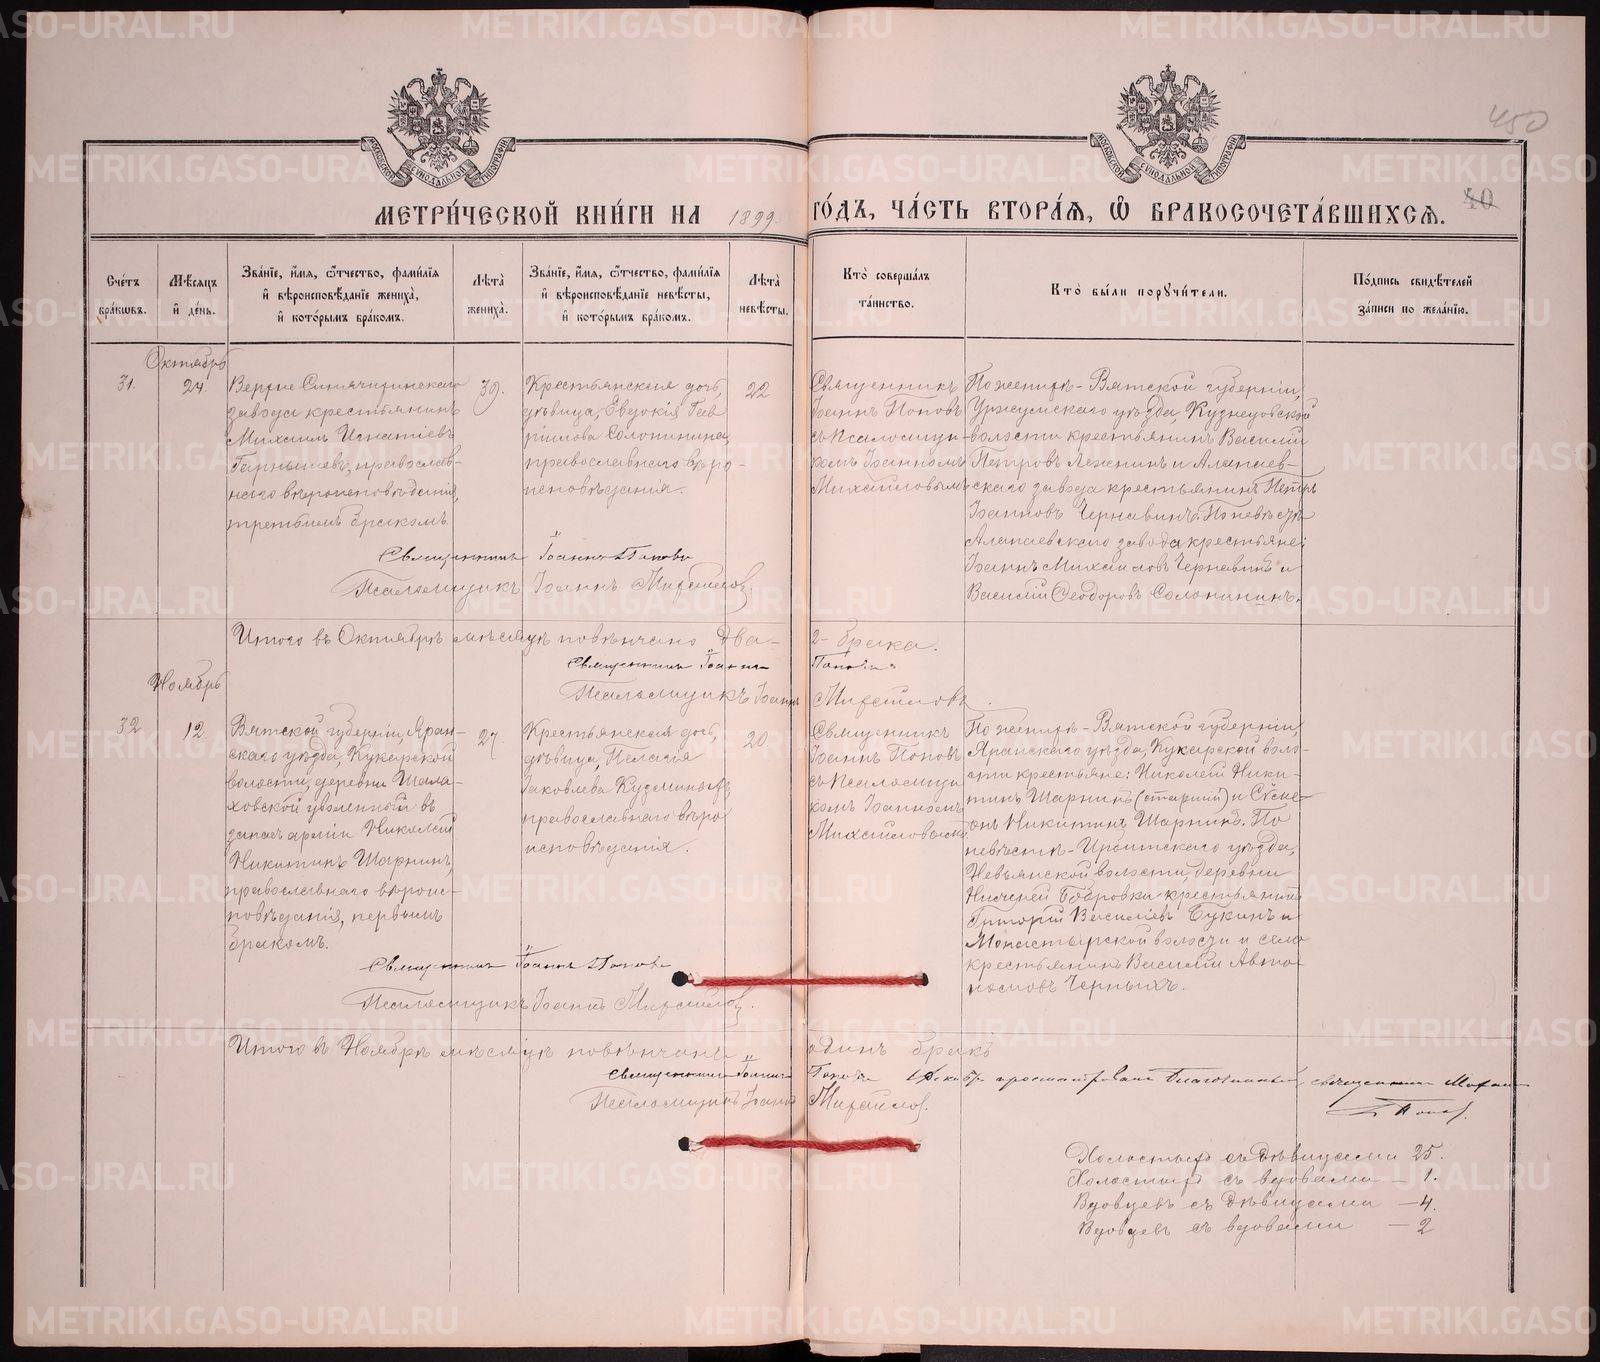 450
40
МОСКОВСКОЙ СѴНОДАЛЬНОЙ ТИПОГРАФІИ
МОСКОВСКОЙ СѴНОДАЛЬНОЙ ТИПОГРАФІИ
МЕТРИ́ЧЕСКОЙ КНИ́ГИ НА 1899. ГО́ДЪ, ЧА́СТЬ ВТОРА́Я, Ѡ҆ БРАКОСОЧЕТА́ВШИХСЯ.
Сче́тъ
бра́кѡвъ.
Мѣ́сяцъ
и҆ де́нь.
Зва́нїе, и҆́мя, ѻ҆́тчество, фами́лїя
и҆ вѣроисповѣ́данїе жениха̀,
и҆ кото́рымъ бра́комъ.
Лѣ́та
жениха̀.
Зва́нїе, и҆́мя, ѻ҆́тчество, фами́лїя
и҆ вѣроисповѣ́данїе невѣ́сты,
и҆ кото́рымъ бра́комъ.
Лѣ́та
невѣ́сты.
Кто̀ соверша́лъ
та́инство.
Кто̀ бы́ли порꙋчи́тели.
По́дпись свидѣ́телей
за́писи по жела́нїю.
Октябрь
31.
24.
Верхне Синячихинскаго
завода крестьянинъ
Михаилъ Игнатіевъ
православ-
наго вѣроисповѣданія,
третьимъ бракомъ.
39.
Крестьянская дочь,
дѣвица, Евдокія Гав
ріилова Солонинина,
православнаго вѣро-
исповѣданія.
22
Священникъ
Іоаннъ Поповъ
съ псаломщи-
комъ Іоанномъ
Михайловымъ
По женихѣ - Вятской губерніи,
Уржумскаго уѣзда, Кузнецовской
волости крестьянинъ Василій
Петровъ Лежнинъ и Алапаев-
скаго завода крестьянинъ Петръ
Іоанновъ Чернавинъ. По невѣстѣ
Алапаевскаго завода крестьяне:
Іоаннъ Михаиловъ Чернавинъ и
Василій Ѳеодоровъ Солонининъ.
Священникъ Іоаннъ Поповъ
Псаломщикъ Іоаннъ Михайловъ.
Итого въ Октябрѣ мѣсяцѣ повѣнчано два - 2 - брака.
Священникъ Іоаннъ Поповъ
Псаломщикъ Іоаннъ Михайловъ.
Ноябрь
32
12
Вятской губерніи, Яран-
скаго уѣзда, Кукарской
волости, деревни Шала-
ховской уволенный въ
запасъ арміи Николай
Никитинъ Шарнинъ,
православнаго вѣроис-
повѣданія, первымъ
бракомъ.
27
Крестьянская дочь,
дѣвица, Пелагія
Іаковлева Кузминыхъ,
православнаго вѣро
исповѣданія.
20
Священникъ
Іоаннъ Поповъ
съ псаломщи
комъ Іоанномъ
Михайловымъ.
По женихѣ - Вятской губерніи,
Яранскаго уѣзда, Кукарской воло-
сти крестьяне: Николай Ники-
тинъ Шарнинъ (старшій) и Сѵме-
онъ Никитинъ Шарнинъ. По
невѣстѣ - Ирбитскаго уѣзда,
Невьянской волости, деревни
Нижней Бобровки крестьянинъ
Григорій Василіевъ Букинъ и
Монастырской волости и села
крестьянинъ Василій Авто-
номовъ Черныхъ.
Священникъ Іоаннъ Поповъ
Псаломщикъ Іоаннъ Михайловъ.
Итого въ Ноябрѣ мѣсяцѣ повѣнчанъ одинъ бракъ
Священникъ Іоаннъ Поповъ
Псаломщикъ Іоаннъ Михайловъ.
Декабр просматривалъ благочинный, священникъ
Поповъ.
Холостыхъ съ дѣвицами 25.
Холостыхъ съ вдовами - 1.
Вдовцевъ съ дѣвицами - 4.
Вдовцевъ съ вдовами - 2
METRIKI.GASO-URAL.RU